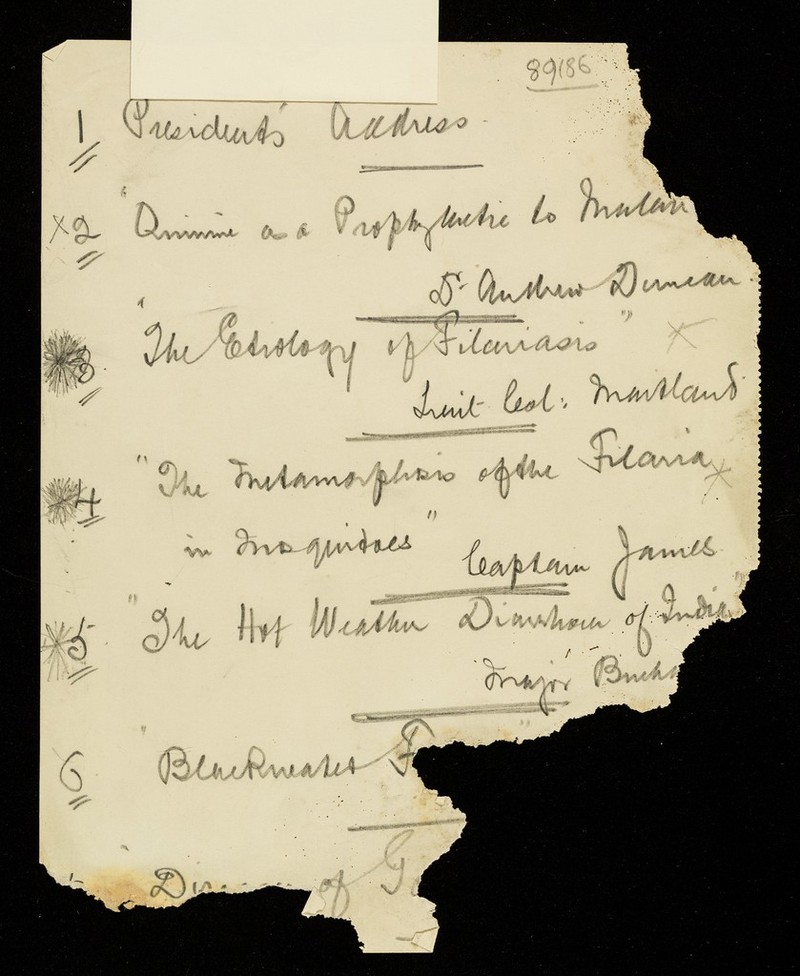 89186
1 President's Address
x 2 "Quinine as a Prophylactic to Malari
Dr. Andrew Duncan
3 "The Etiology of Filariasis" x
Lieut Col: Maitland
4 "The Metamorphosis of the Filaria x
in Mosquitoes"
Captain James
5 "The Hot Weather Diarrhoea of India"
Major Bucha
6 "Blackwater F "
of G